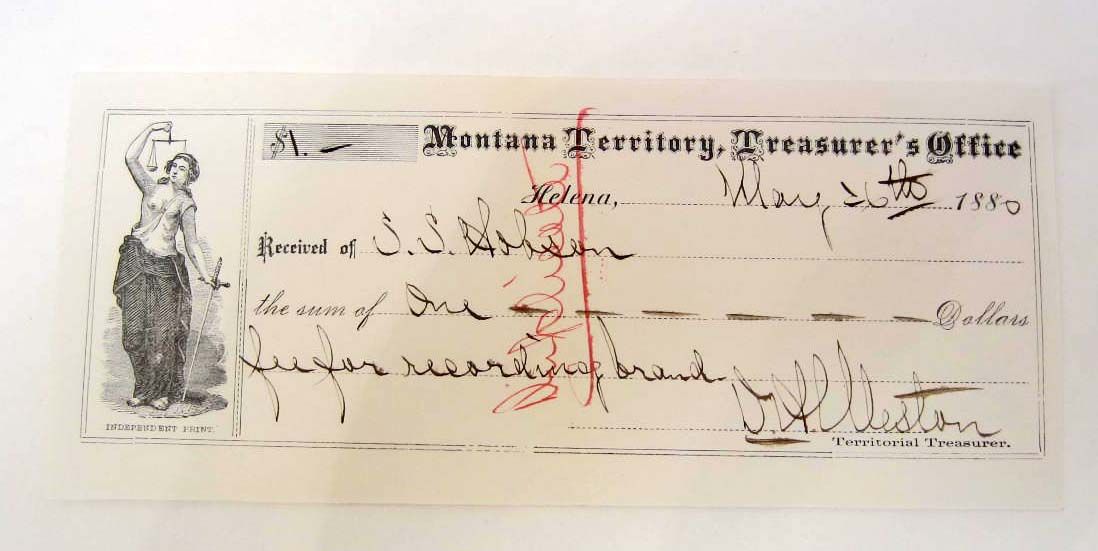 $1.— Montana Territory, Treasurer's Office
Helena, May 26th 1880
Received of S. S. Hobson
the sum of One — — — — — — Dollars
fee for recording brand
D. H. Weston
Territorial Treasurer.
INDEPENDENT PRINT.